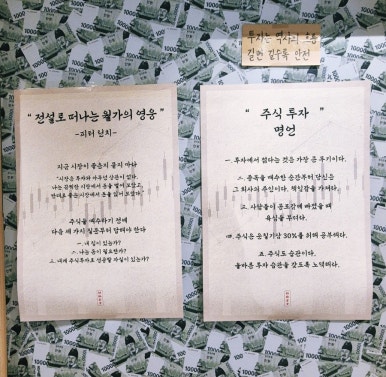 투자는 역사의 흐름
길면 길수록 안전
“ 전설로 떠나는 월가의 영웅 ”
-피터 린치-
지금 시장이 좋은지 묻지 마라
"시장은 투자와 아무런 상관이 없다.
나는 끔찍한 시장에서 돈을 벌어 보았고,
반대로 좋은 시장에서 돈을 잃어 보았다."
주식을 매수하기 전에
다음 세 가지 질문부터 답해야 한다
一. 내 집이 있는가?
二. 나는 돈이 필요한가?
三. 내게 주식투자로 성공할 자질이 있는가?
“ 주식 투자 ”
명언
一. 투자에서 젊다는 것은 가장 큰 무기이다.
二. 종목을 매수한 순간부터 당신은
그 회사의 주인이다. 책임감을 가져라.
三. 사람들이 공포감에 빠졌을 때
욕심을 부려라.
四. 주식은 운칠기삼 30%를 위해 공부해라.
五. 주식도 습관이다.
올바른 투자 습관을 갖도록 노력해라.
10000